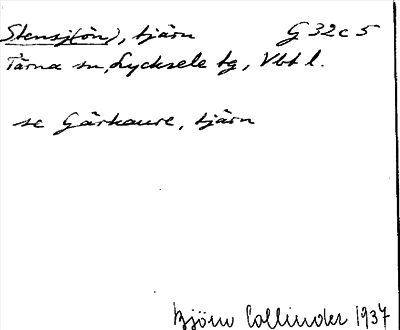 Stensj(ön), tjärn G 32 c 5
Tärna sn, Lycksele tg, Vbt l.
se Gårkaure, tjärn
Björn Collinder 1937